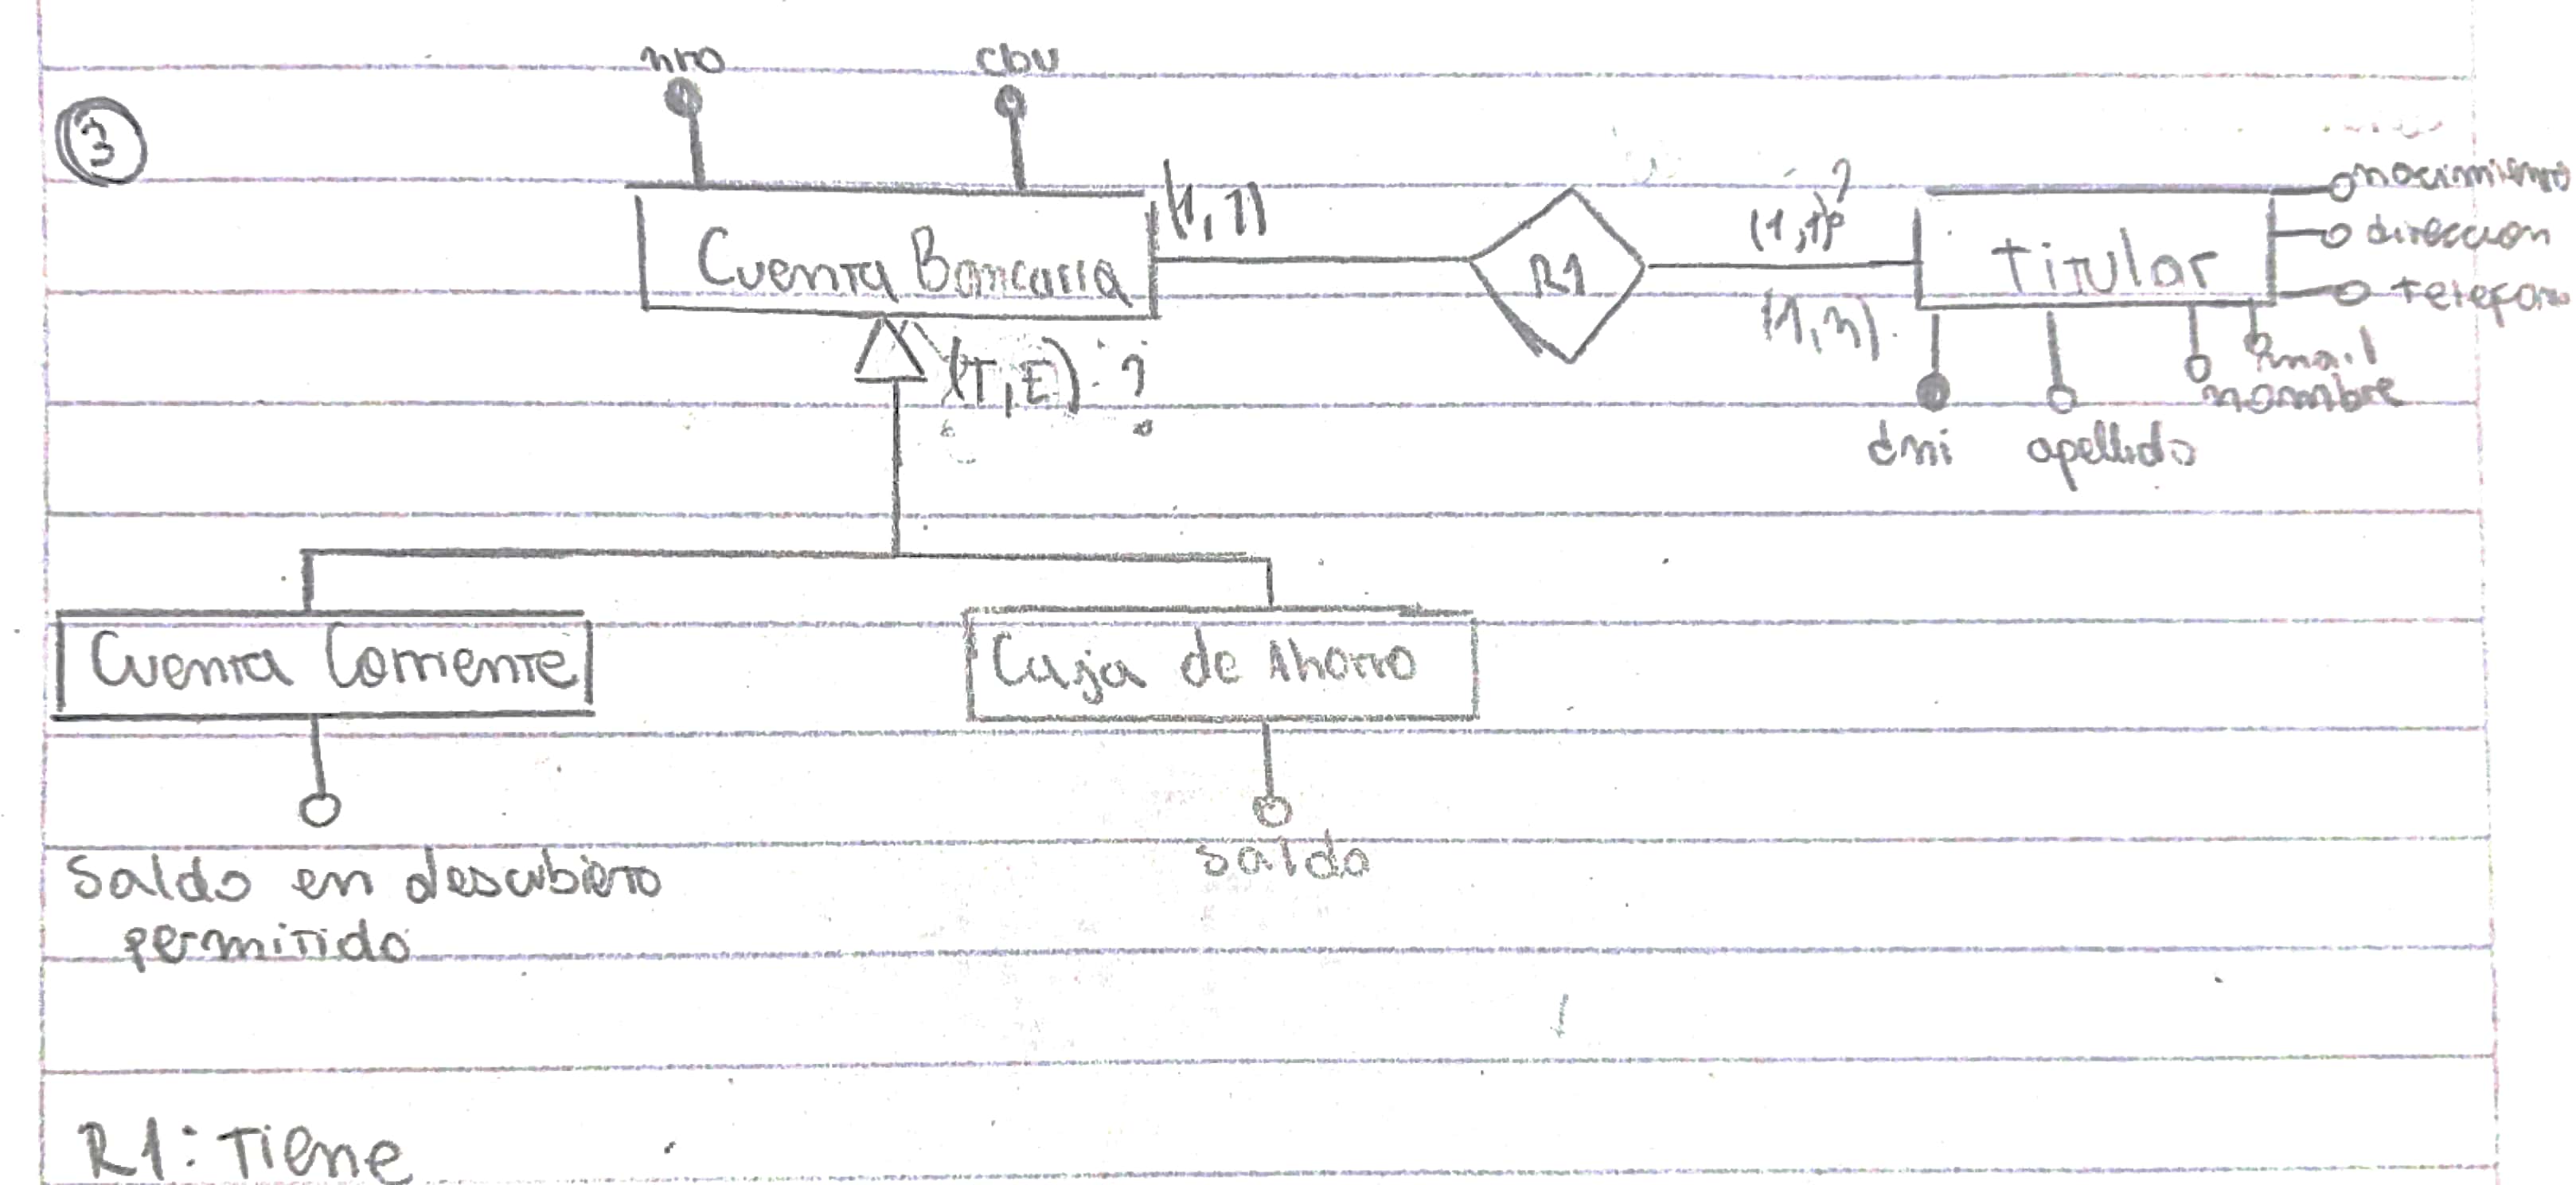 nro cbu
3
Cuenta Bancaria
(1,1)
R1
(1,1)?
(1,n).
Titular
nacimiento
direccion
telefono
email
nombre
dni apellido
(T,E).?
Cuenta Corriente
Caja de Ahorro
Saldo en descubierto
permitido
saldo
R1: Tiene